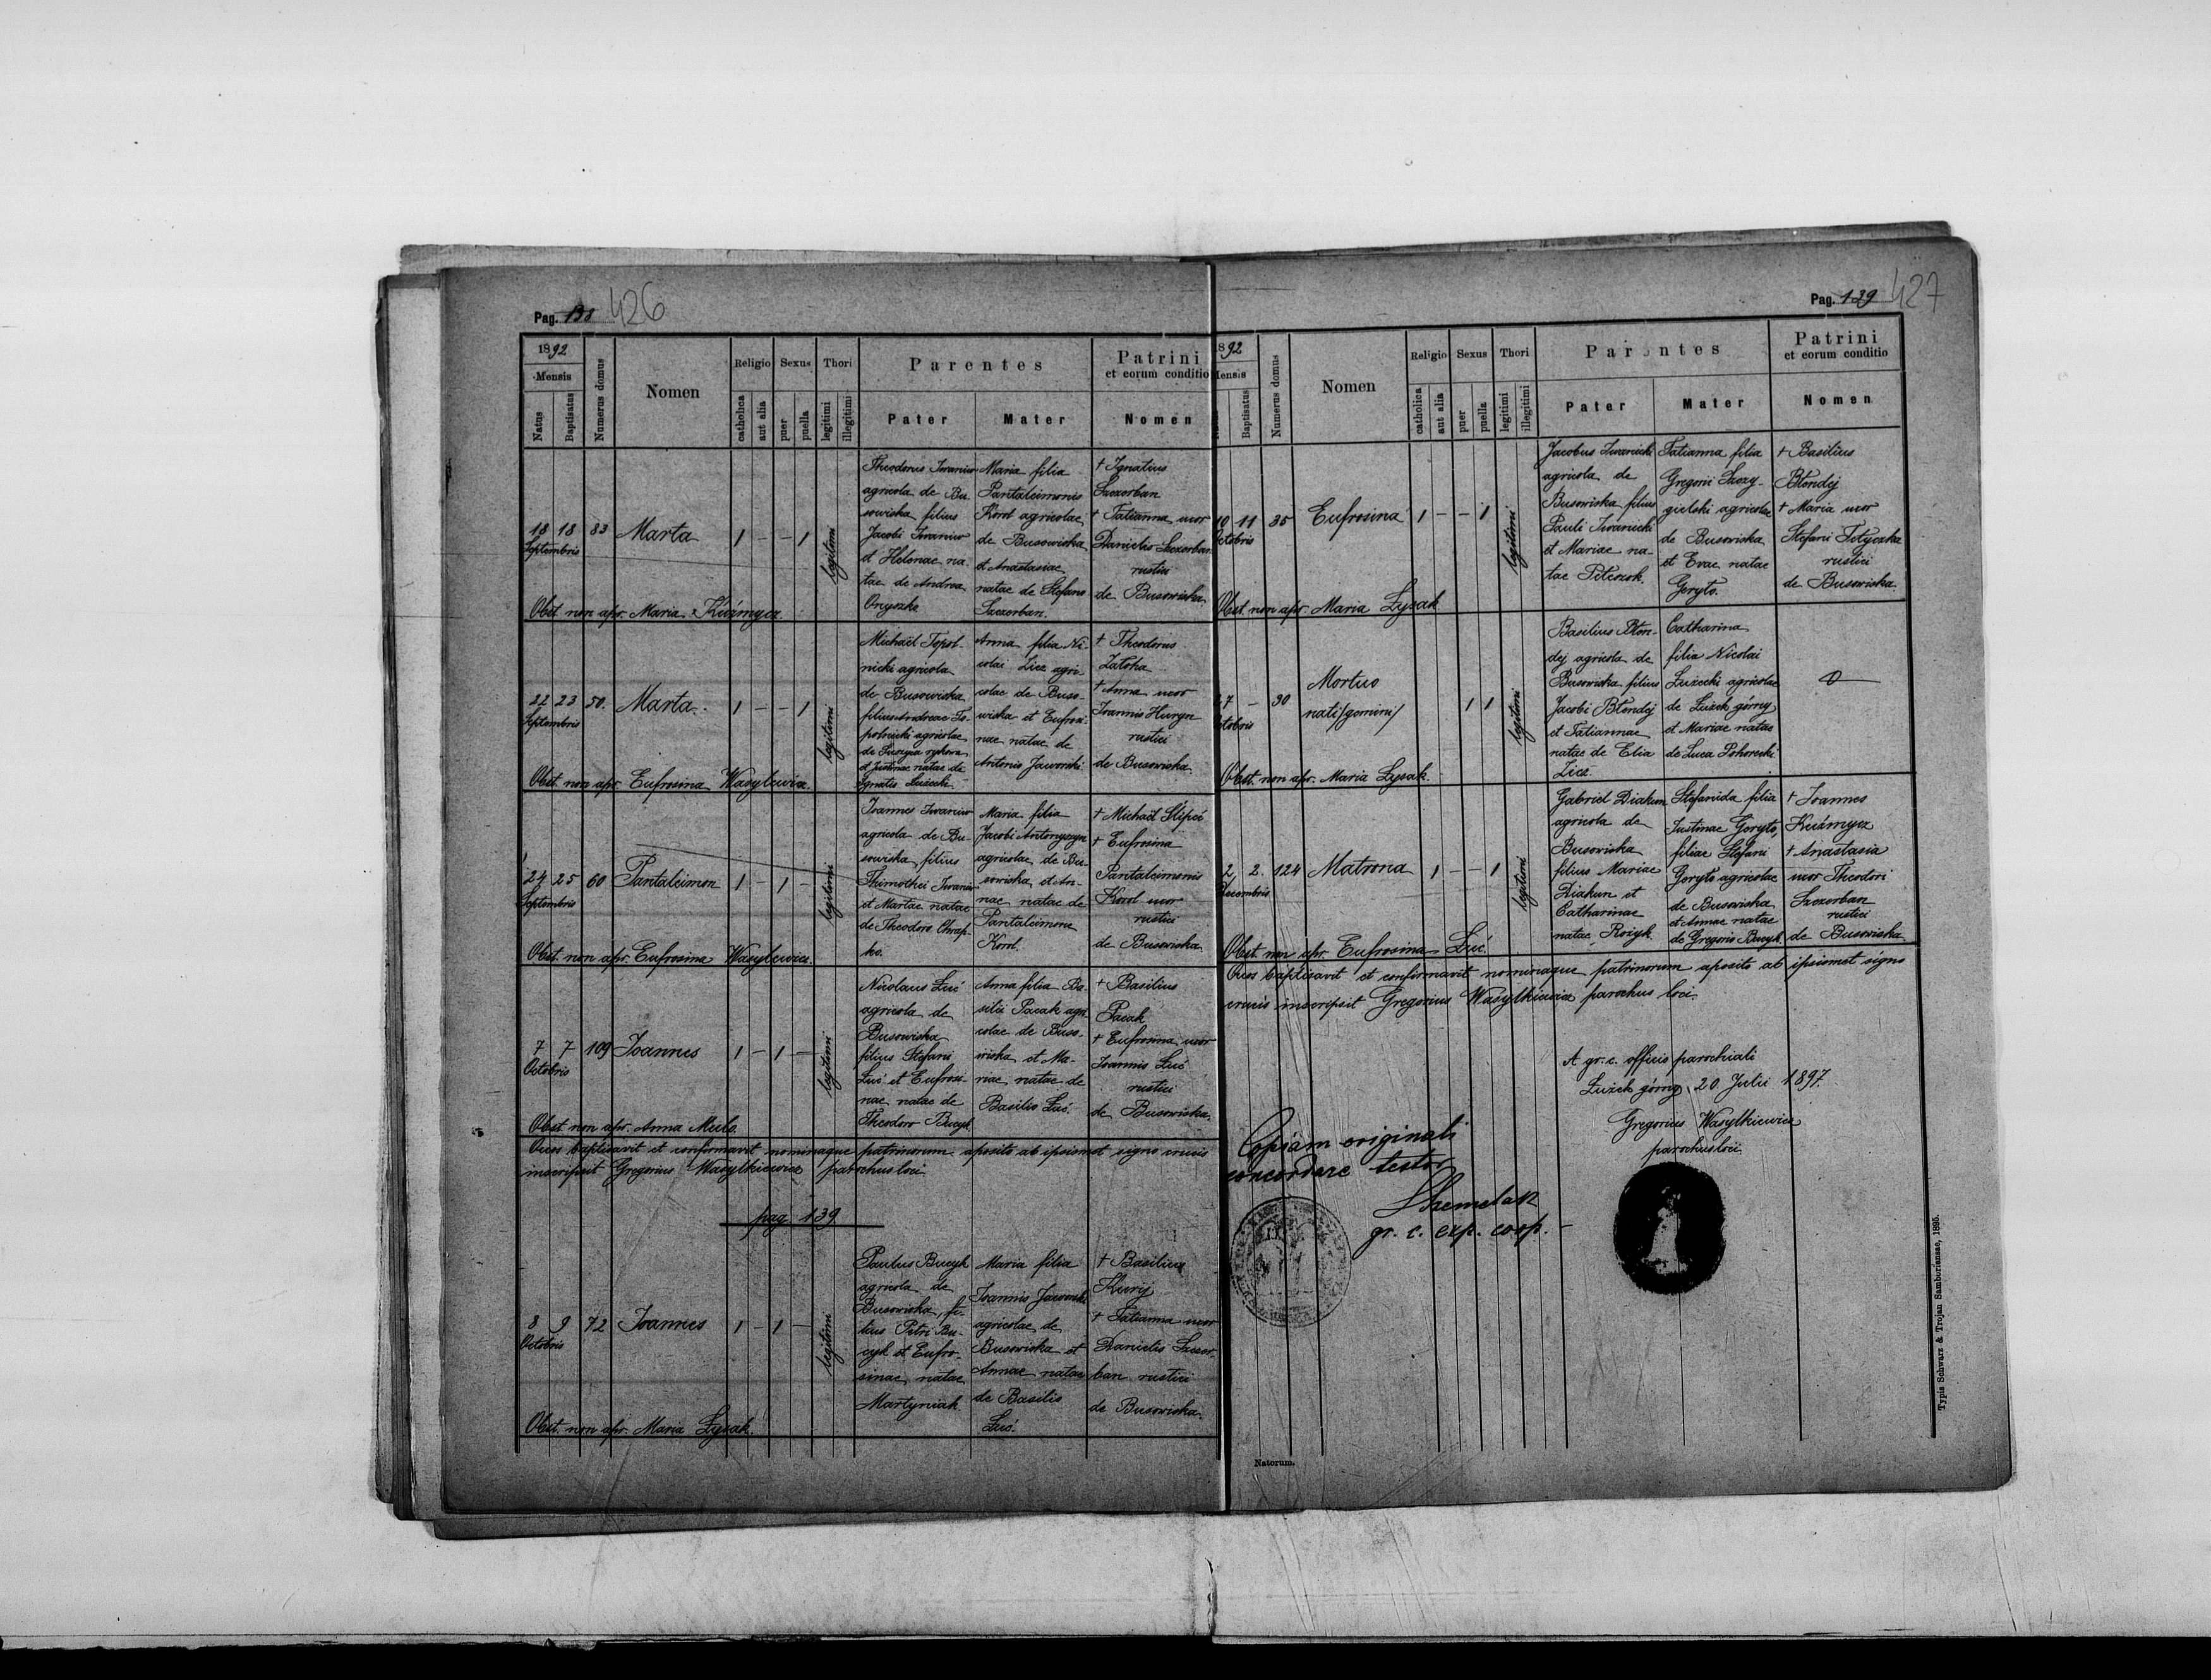 Pag. 138 426
1892
Mensis
Natus
Baptisatus
Numerus domus
Nomen
Religio
catholica
aut alia
Sexus
puer
puella
Thori
legitimi
illegitimi
Parentes
Pater
Mater
Patrini
et eorum conditio
Nomen
18 18 83 Marta 1 - - 1 legitimi
Septembris
Theodorus Iwaniw
agricola de Bu-
sowiska filius
Jacobi Iwaniw
et Helenae na-
tae de Andrea
Onyszko
Maria filia
Pantaleimonis
Korol agricolae
de Busowiska
et Anastasiae
natae de Stefano
Szczorban.
† Ignatius
Szczorban
† Tatianna uxor
Danielis Szczorban
rustici
de Busowiska
Obst. non apr. Maria Kuźmycz
22 23 50. Marta. 1 - - 1 legitimi
Septembris
Michael Topol-
nicki agricola
de Busowiska
filius Andreae To-
polnicki agricolae
de Suszyca rykowa
et Justinae natae de
Ignatio Łużecki.
Anna filia Ni-
colai Licz agri-
colae de Buso-
wiska et Eufrosi-
nae natae de
Antonio Jaworski
† Theodorus
Zatoka
† Anna uxor
Ioannis Huryn
rustici
de Busowiska
Obst. non apr. Eufrosina Wasylewicz.
24 25 60 Pantaleimon 1 - 1 - legitimi
Septembris
Ioannes Iwaniw
agricola de Bu-
sowiska filius
Thimothei Iwaniw
et Martae natae
de Theodoro Chrap-
ko.
Maria filia
Jacobi Antonyszyn
agricolae de Bu-
sowiska et An-
nae natae de
Pantaleimone
Korol.
† Michael Slipeć
† Eufrosina
Pantaleimonis
Korol uxor
rustici
de Busowiska
Obst. non apr. Eufrosina Wasylewicz.
7 7 109 Ioannes 1 - 1 - legitimi
Octobris
Nicolaus Łuć
agricola de
Busowiska
filius Stefani
Łuć et Eufrosi-
nae natae de
Theodoro Bucyk
Anna filia Ba-
silii Pacak agri-
colae de Buso-
wiska et Ma-
riae natae de
Basilio Łuć.
† Basilius
Pacak
† Eufrosina uxor
Ioannis Łuć
rustici
de Busowiska
Obst. non apr. Anna Mulo.
Quos baptisavit et confirmavit nominaque patrinorum aposito ab ipsismet signo crucis
inscripsit Gregorius Wasylkiewicz parochus loci
pag 139
8 9 72 Ioannes 1 - 1 - legitimi
Octobris
Paulus Bucyk
agricola de
Busowiska, fi-
lius Petri Bu-
cyk et Eufro-
sinae natae
Martyniak.
Maria filia
Ioannis Jaworski
agricolae de
Busowiska et
Annae natae
de Basilio
Łuć.
† Basilius
Huryj
† Tatianna uxor
Danielis Szczor-
ban rustici
de Busowiska.
Obst. non apr. Maria Łysak.
Pag. 139 427
1892
Mensis
Baptisatus
Numerus domus
Nomen
Religio
catholica
aut alia
Sexus
puer
puella
Thori
legitimi
illegitimi
Parentes
Pater
Mater
Patrini
et eorum conditio
Nomen
10 11 35 Eufrosina 1 - - 1 legitimi
Octobris
Jacobus Iwanicki
agricola de
Busowiska filius
Pauli Iwanicki
et Mariae na-
tae Pitczuk.
Tatianna filia
Gregorii Szczy-
gielski agricolae
de Busowiska
et Evae natae
Goryto.
† Basilius
Błondej
† Maria uxor
Stefani Fetyczka
rustici
de Busowiska.
Obst. non apr. Maria Łysak
27 - 30 Mortuo 1 1 legitimi
nati /gemini/
Octobris
Basilius Błon-
dej agricola de
Busowiska filius
Jacobi Błondej
et Tatiannae
natae de Elia
Licz.
Catharina
filia Nicolai
Łużecki agricolae
de Łużek górny
et Mariae natae
de Luca Pohorecki
Obst. non apr. Maria Łysak.
2 2. 124 Matrona 1 - - 1 legitimi
Decembris
Gabriel Diakun
agricola de
Busowiska
filius Mariae
Diakun et
Catharinae
natae Rożyk.
Stefanida filia
Justinae Goryto,
filiae Stefani
Goryto agricolae
de Busowiska
et Annae natae
de Gregorio Bucyk
† Ioannes
Kuźmycz
† Anastasia
uxor Theodori
Szczorban
rustici
de Busowiska
Obst. non apr. Eufrosina Łuć.
Quos baptisavit et confirmavit nominaque patrinorum aposito ab ipsismet signo
crucis inscripsit Gregorius Wasylkiewicz parochus loci
A gr. c. officio parochiali
Łużek górny, 20. Julii 1897
Gregorius Wasylkiewicz
parochus loci.
Copiam originali
concordare testor
gr. c. exp. coop.
Natorum.
Typis Schwarz & Trojan Samboriensae, 1895.